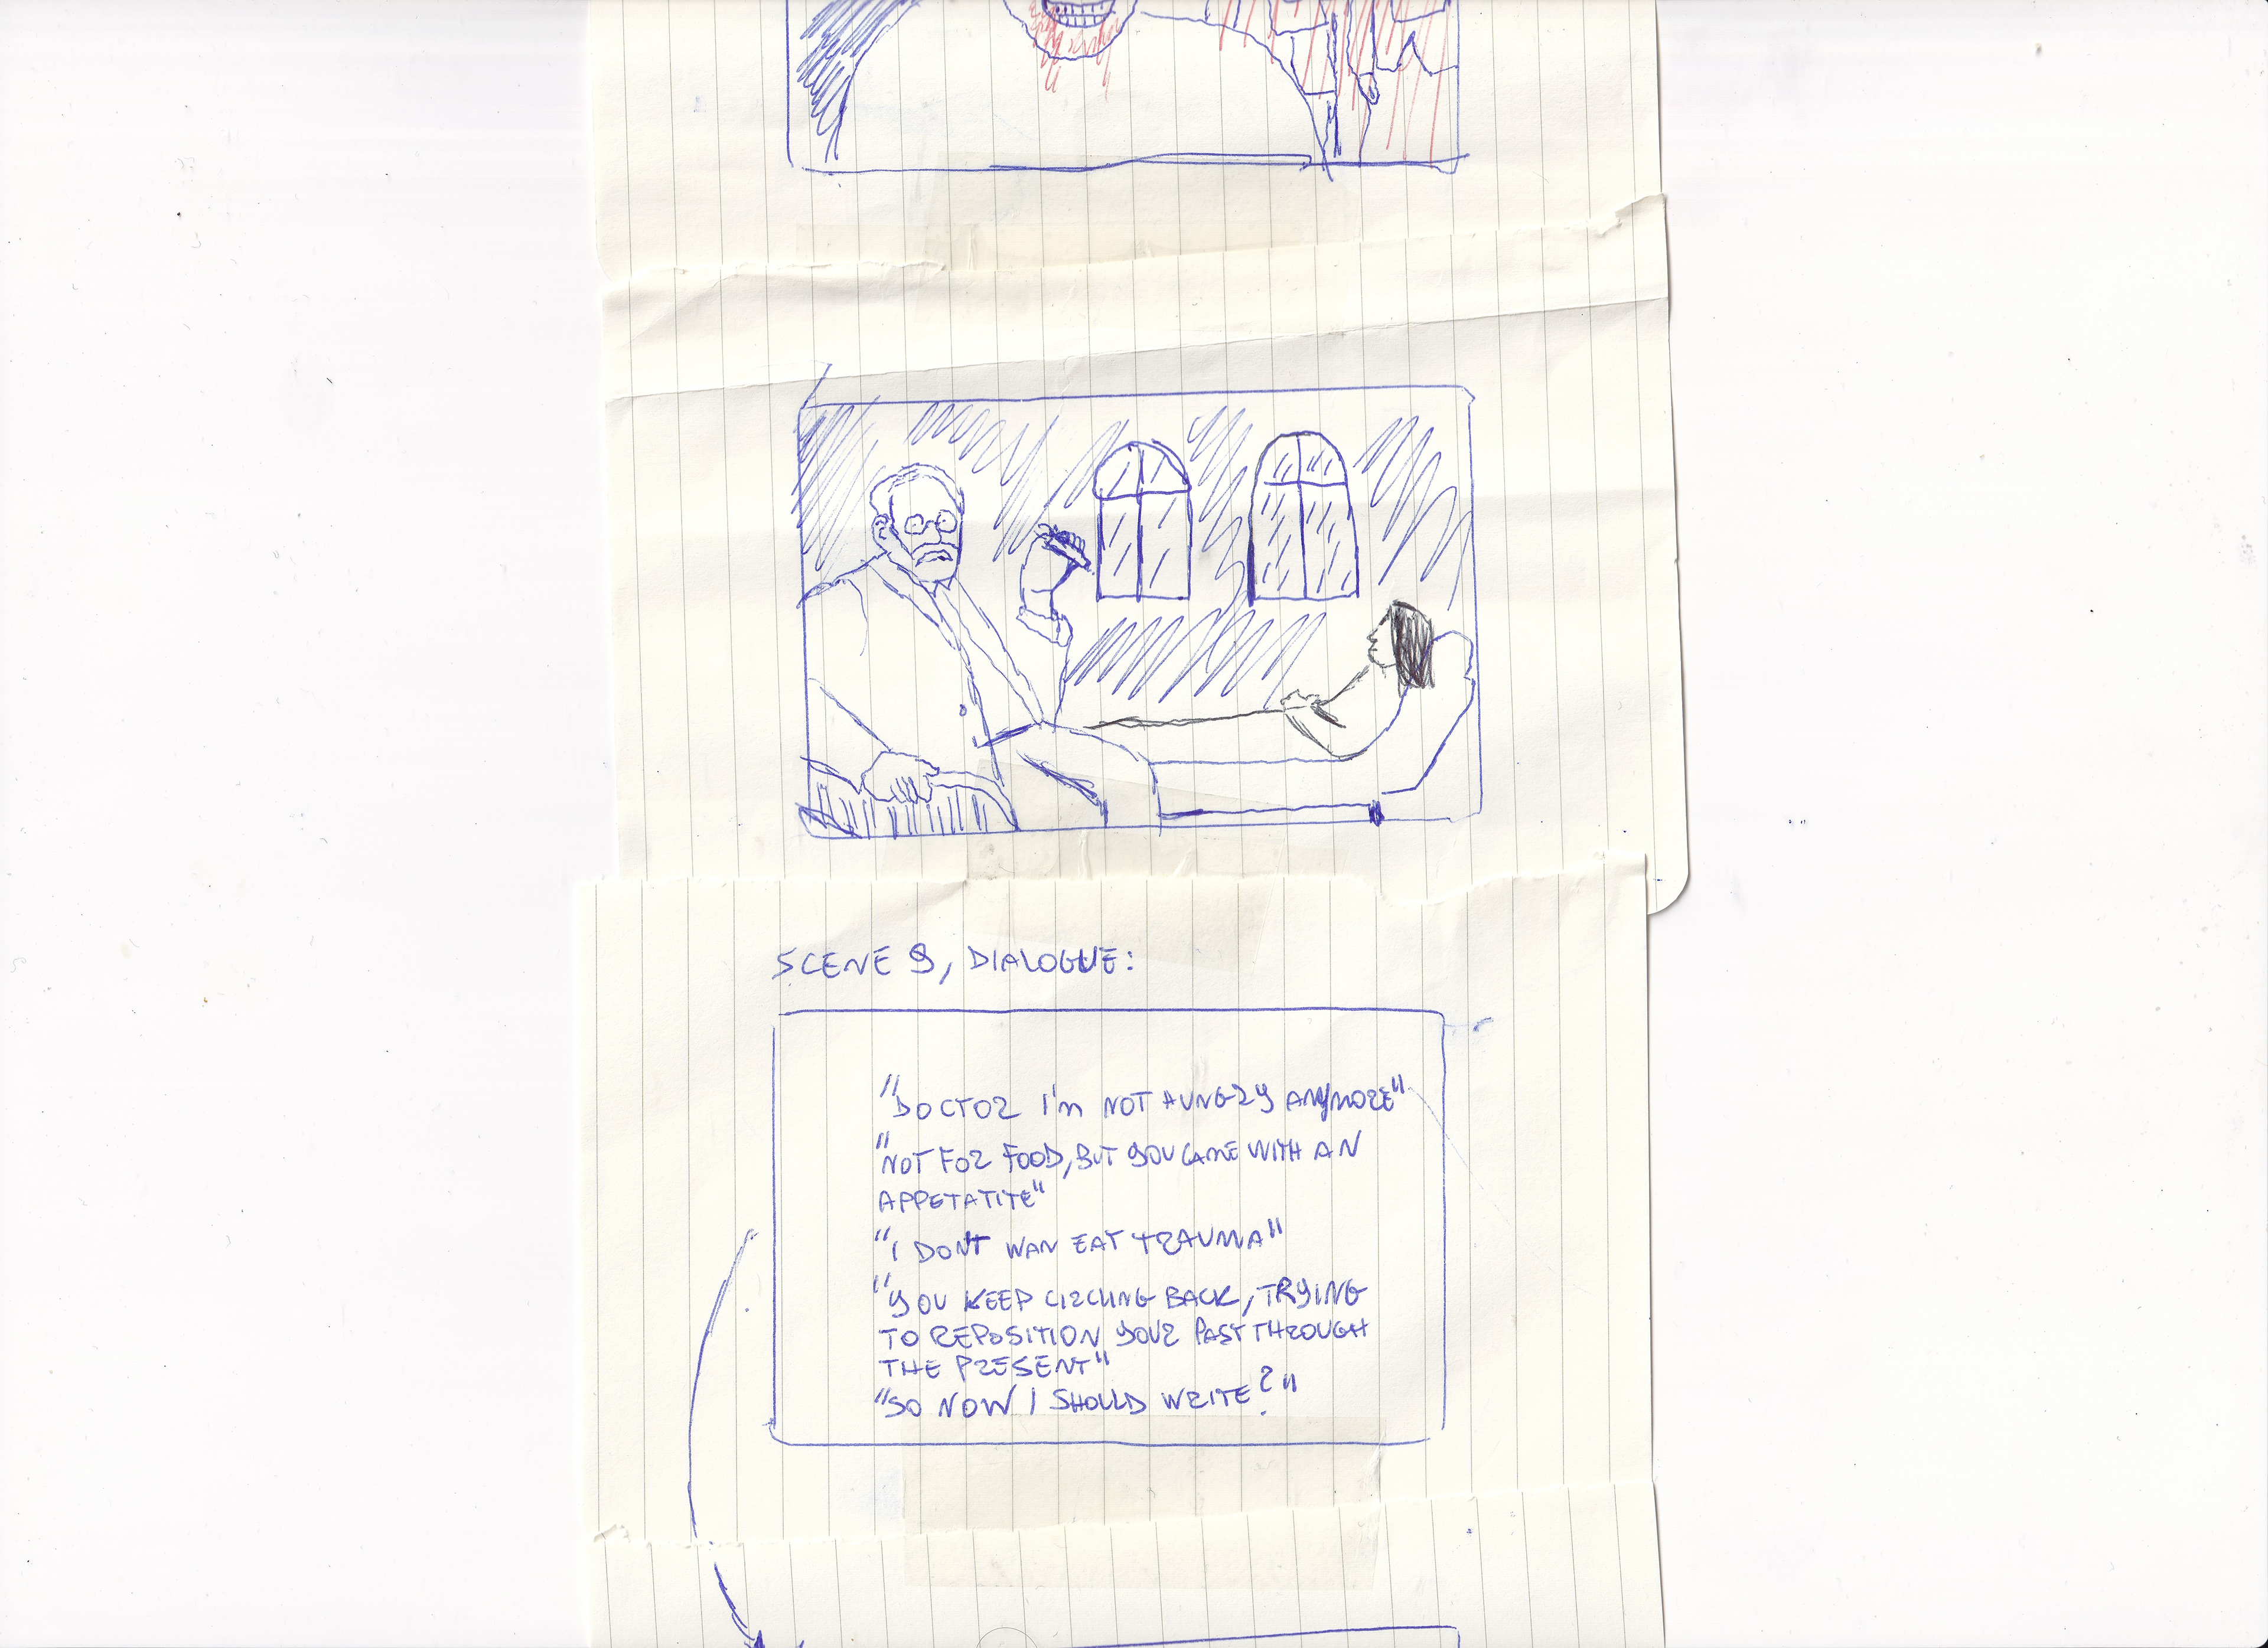 SCENE 9, DIALOGUE:
"DOCTOR I'm NOT HUNGRY ANYMORE"
"NOT FOR FOOD, BUT YOU CAME WITH AN
APPETATITE"
"I DON'T WAN EAT TRAUMA"
"YOU KEEP CIRCLING BACK, TRYING
TO REPOSITION YOUR PAST THROUGH
THE PRESENT"
"SO NOW I SHOULD WRITE?"